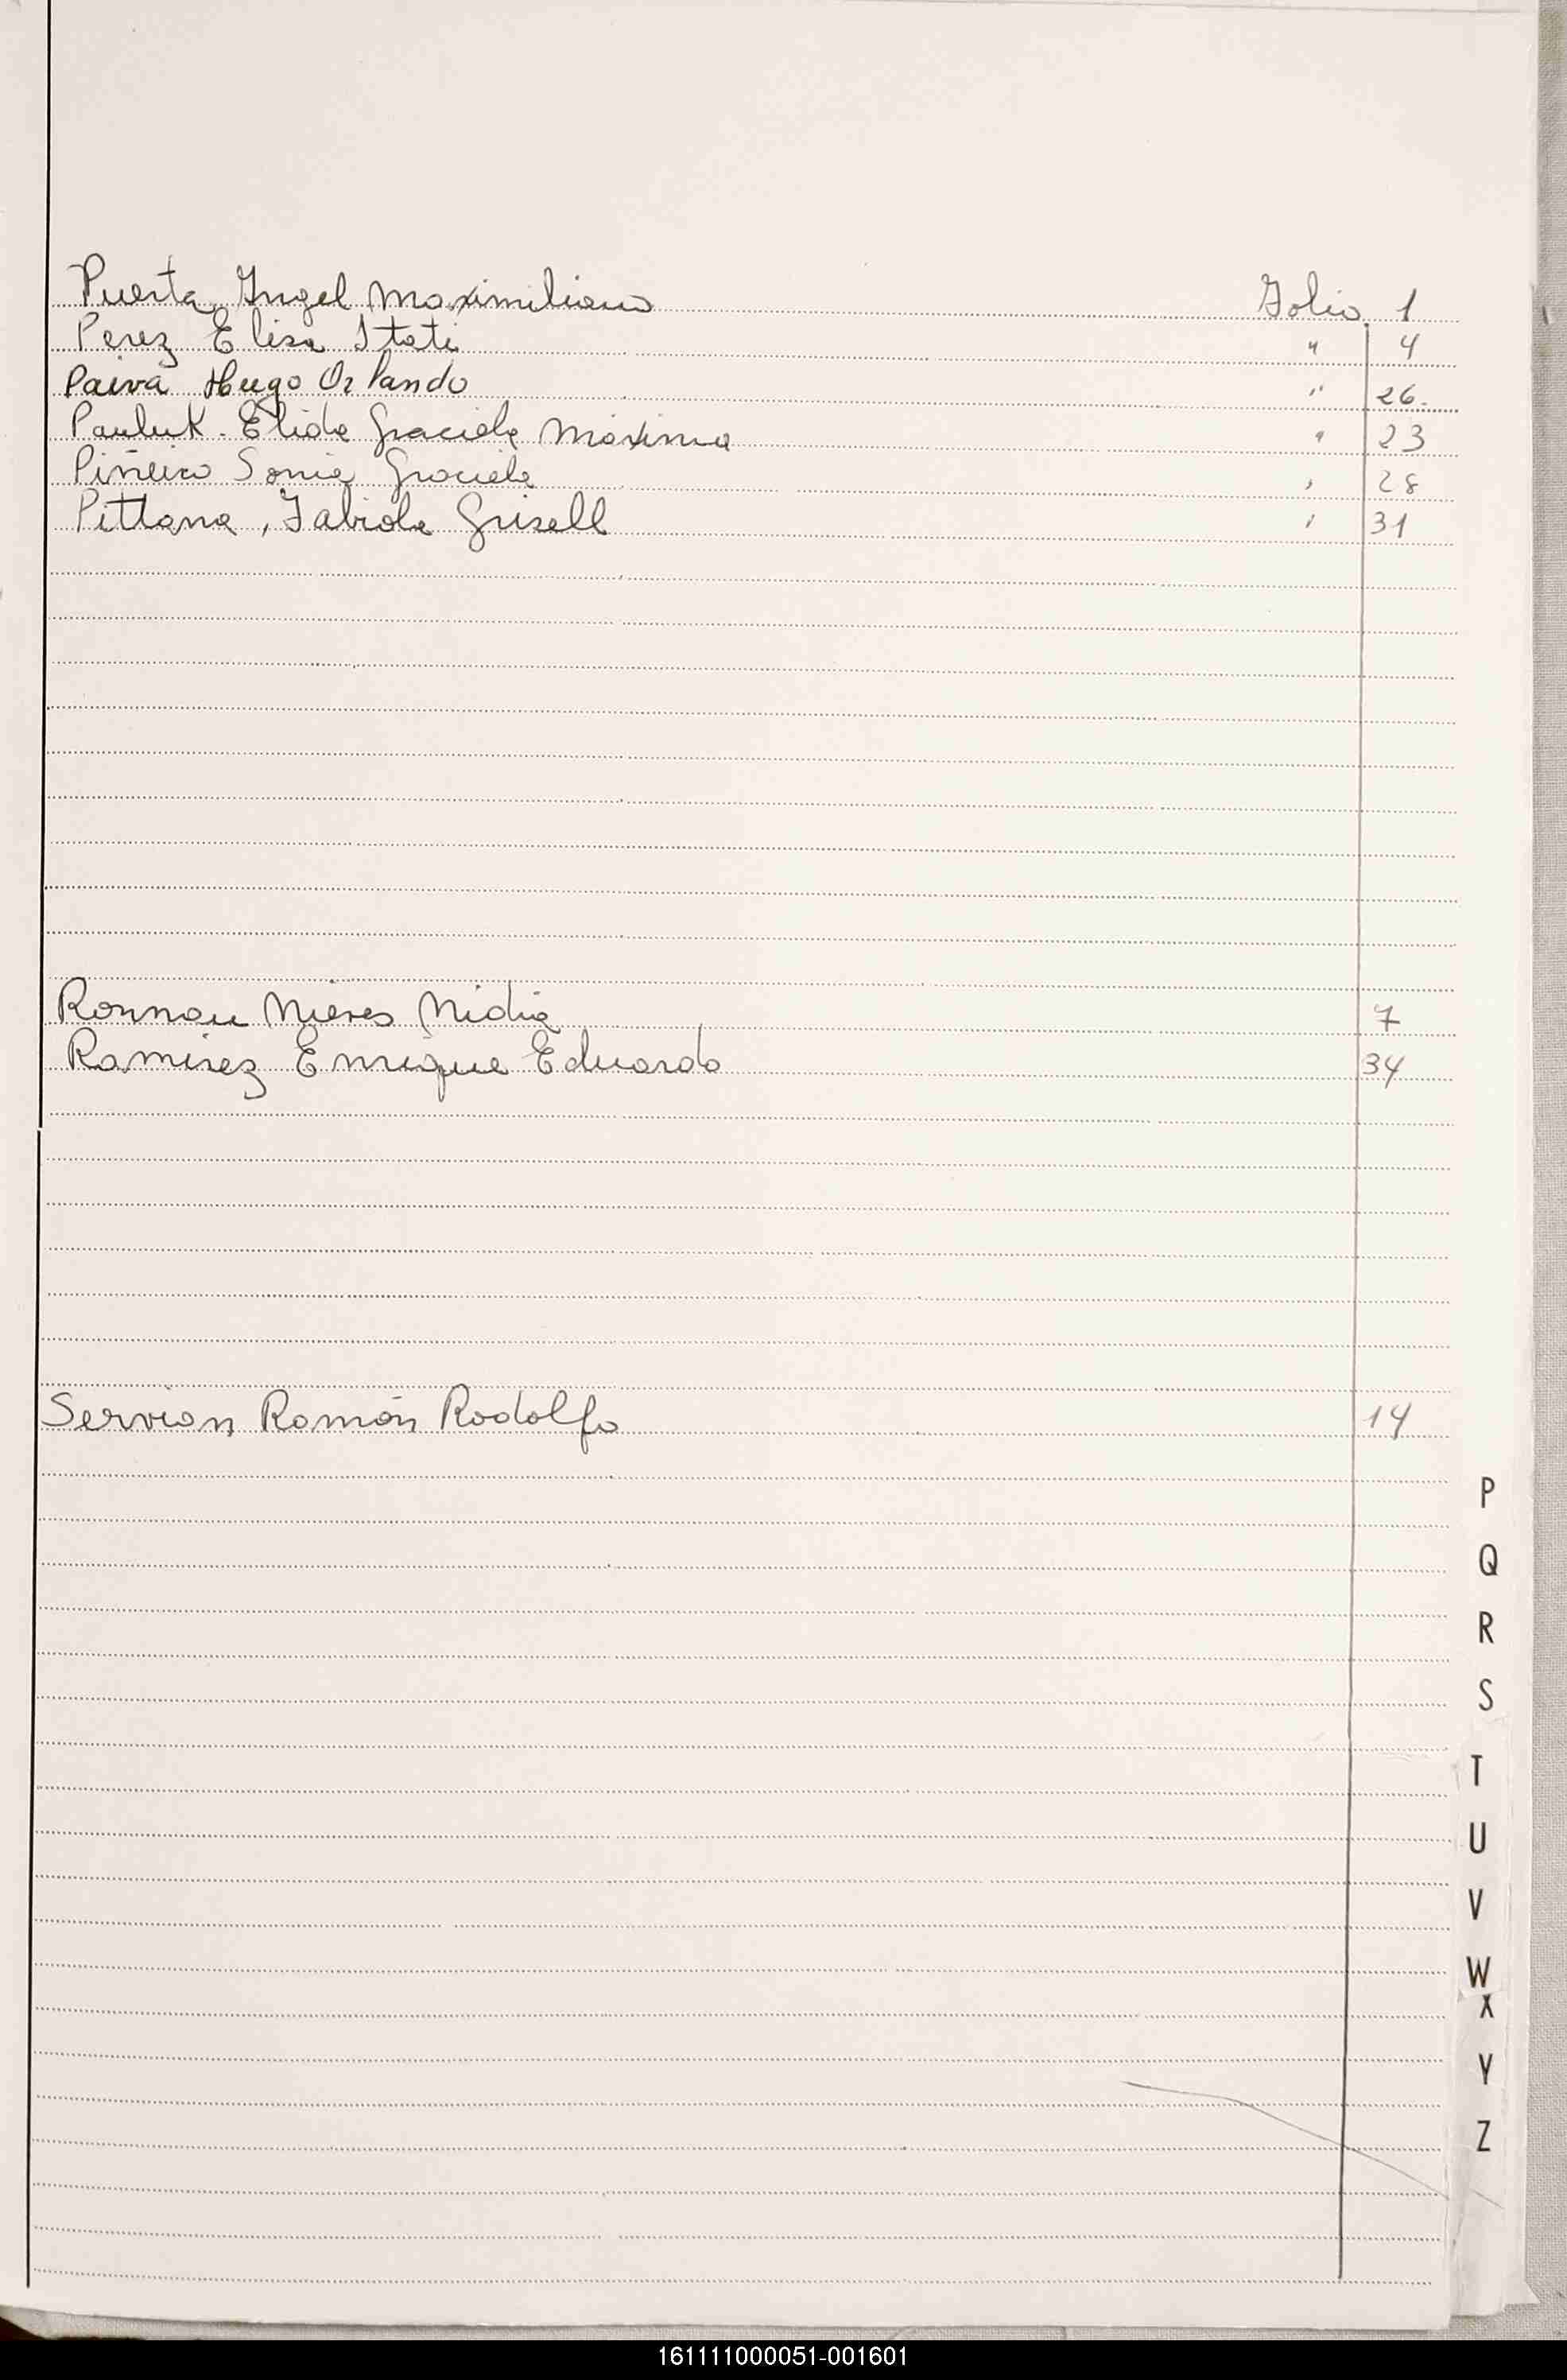 Puerta Angel Maximiliano Folio 1
Perez Elisa Itati " 4
Paiva Hugo Orlando " 26.
Pauluk Elida Graciela Máxima " 23
Piñeiro Sonia Graciela " 28
Pittana, Fabiola Grisell " 31
Ronnau Nieres Nidia 7
Ramirez Enrique Eduardo 34
Servian Ramón Rodolfo 14
P
Q
R
S
T
U
V
W
X
Y
Z
161111000051-001601